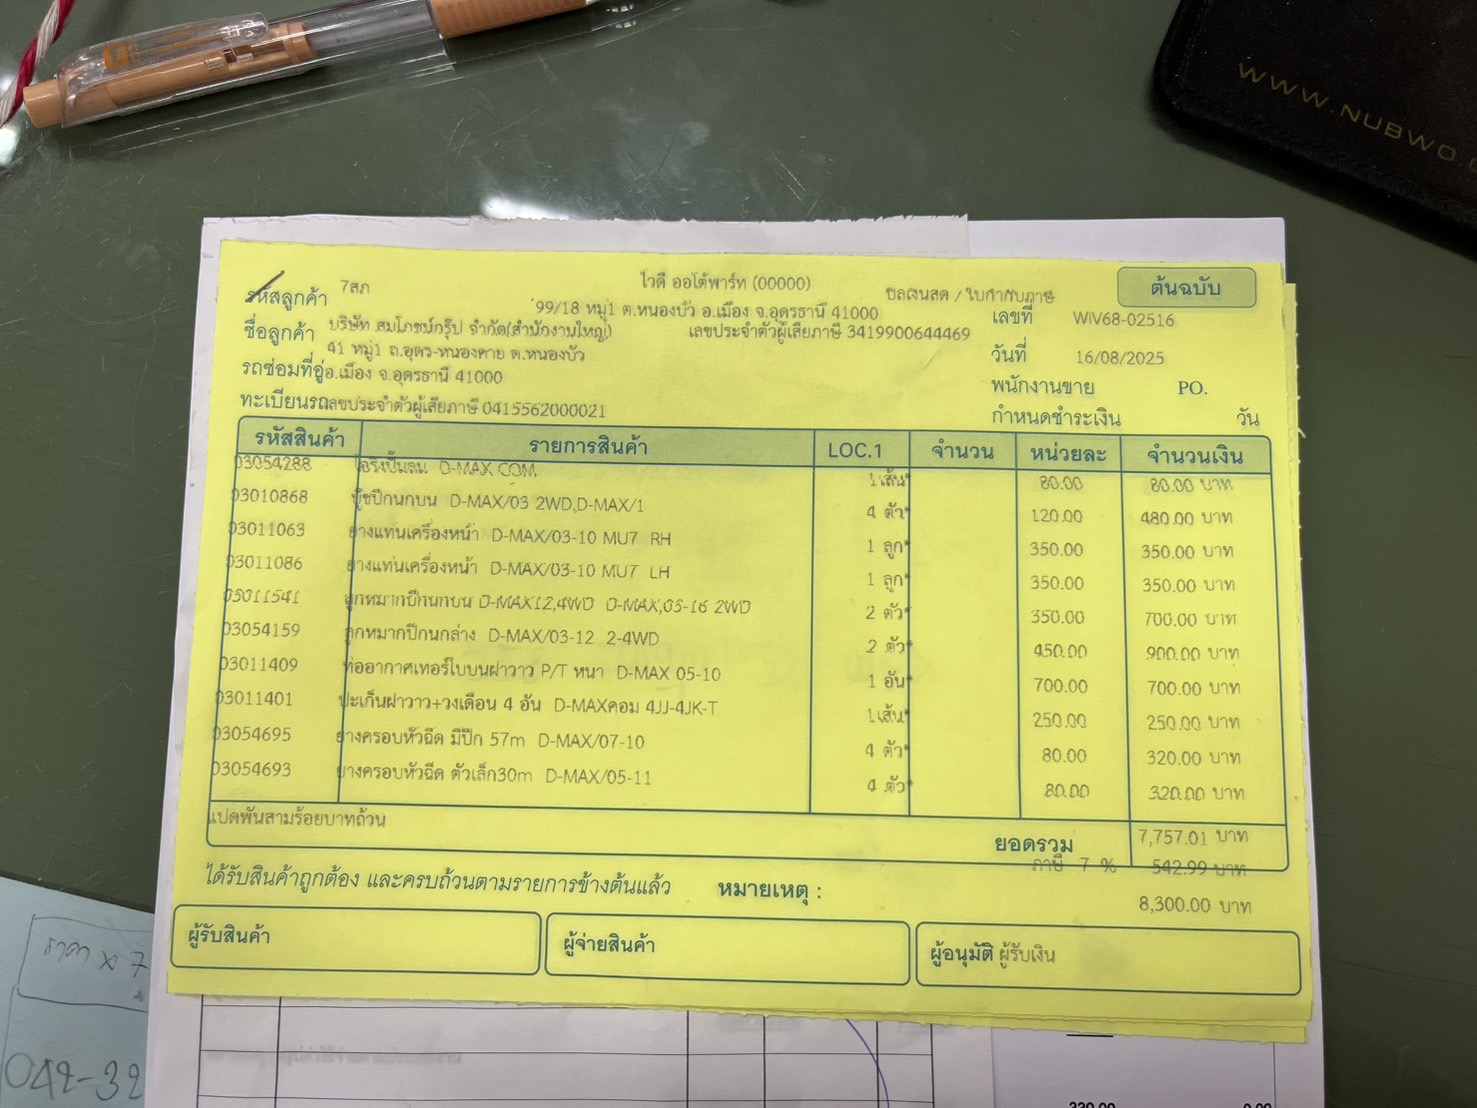 WWW.NUBWO.
ไวดี ออโต้พาร์ท (00000)
ต้นฉบับ
รหัสลูกค้า 7สภ
99/18 หมู่1 ต.หนองบัว อ.เมือง จ.อุดรธานี 41000
บิลเงินสด / ใบกำกับภาษี
ชื่อลูกค้า บริษัท สมโภชน์กรุ๊ป จำกัด(สำนักงานใหญ่)
เลขประจำตัวผู้เสียภาษี 3419900644469
เลขที่ WIV68-02516
41 หมู่1 ถ.อุดร-หนองคาย ต.หนองบัว
วันที่ 16/08/2025
รถซ่อมที่อู่ อ.เมือง จ.อุดรธานี 41000
พนักงานขาย PO.
ทะเบียนรถ เลขประจำตัวผู้เสียภาษี 0415562000021
กำหนดชำระเงิน วัน
รหัสสินค้า รายการสินค้า LOC.1 จำนวน หน่วยละ จำนวนเงิน
03054288 โอริงปั๊มลม D-MAX COM. 1 เส้น* 80.00 80.00 บาท
03010868 บู๊ชปีกนกบน D-MAX/03 2WD,D-MAX/1 4 ตัว* 120.00 480.00 บาท
03011063 ยางแท่นเครื่องหน้า D-MAX/03-10 MU7 RH 1 ลูก* 350.00 350.00 บาท
03011086 ยางแท่นเครื่องหน้า D-MAX/03-10 MU7 LH 1 ลูก* 350.00 350.00 บาท
03011541 ลูกหมากปีกนกบน D-MAX12,4WD D-MAX,05-16 2WD 2 ตัว* 350.00 700.00 บาท
03054159 ลูกหมากปีกนกล่าง D-MAX/03-12 2-4WD 2 ตัว* 450.00 900.00 บาท
03011409 ท่ออากาศเทอร์โบบนฝาวาว P/T หนา D-MAX 05-10 1 อัน* 700.00 700.00 บาท
03011401 ปะเก็นฝาวาว+วงเดือน 4 อัน D-MAXคอม 4JJ-4JK-T 1 เส้น* 250.00 250.00 บาท
03054695 ยางครอบหัวฉีด มีปีก 57m D-MAX/07-10 4 ตัว* 80.00 320.00 บาท
03054693 ยางครอบหัวฉีด ตัวเล็ก30m D-MAX/05-11 4 ตัว* 80.00 320.00 บาท
แปดพันสามร้อยบาทถ้วน
ยอดรวม 7,757.01 บาท
ภาษี 7 % 542.99 บาท
ได้รับสินค้าถูกต้อง และครบถ้วนตามรายการข้างต้นแล้ว หมายเหตุ :
8,300.00 บาท
ผู้รับสินค้า ผู้จ่ายสินค้า ผู้อนุมัติ ผู้รับเงิน
ราคา x 7
042-32